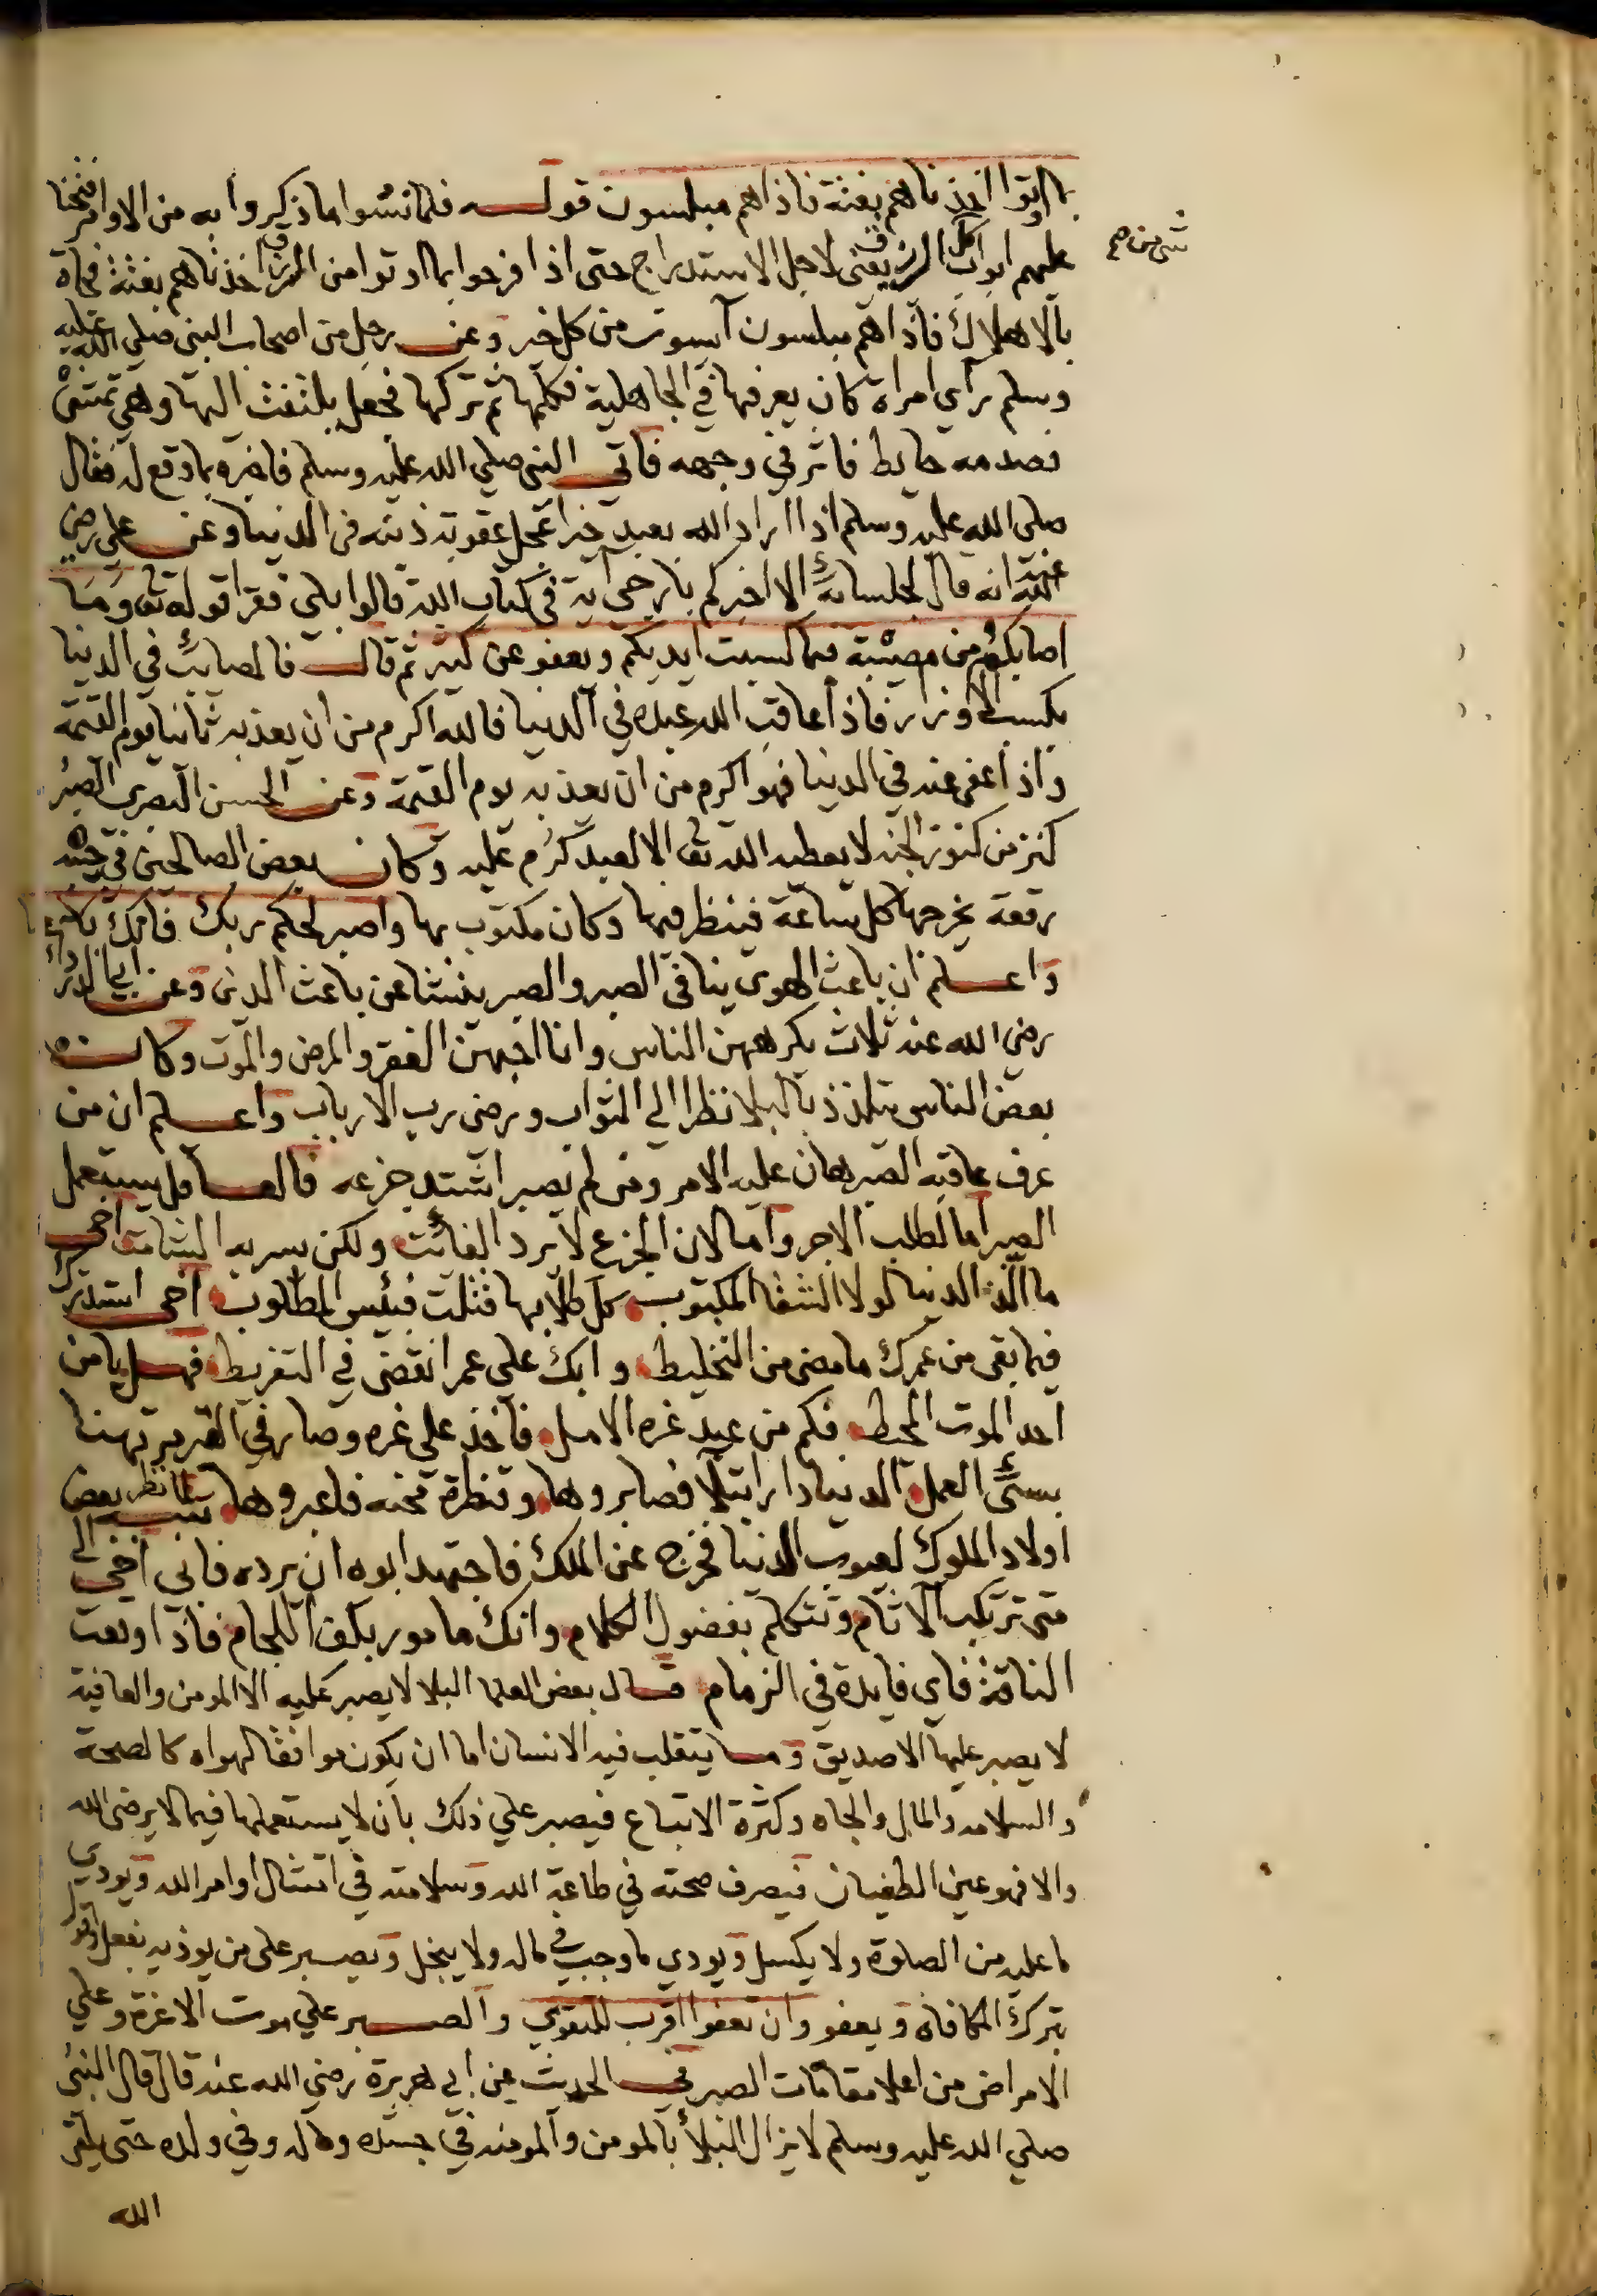 بما اوتوا اخذناهم بغتة فاذا هم مبلسون قوله فلما نسوا ما ذكروا به من الاوامر فتحنا
عليهم ابواب كل الرزق يعنى لاجل الاستدراج حتى اذا فرحوا بما اوتوا من الرزق اخذناهم بغتة فجاة
شى من صح
بالاهلاك فاذا هم مبلسون آيسون من كل خير وعن رجل من اصحاب النبي صلي الله عليه
وسلم رآي امراة كان يعرفها في الجاهلية فكلمها ثم تركها فجعل يلتفت اليها وهي تمشي
فصدمه حايط فاثر في وجهه فاتي النبي صلي الله عليه وسلم فاخبره بما وقع له فقال
صلى الله عليه وسلم اذا اراد الله بعبد خيرا عجل عقوبة ذنبه في الدنيا وعن على رضي
الله عنه انه قال لجلسائه الا اخبركم بارجي آية في كتاب الله قالوا بلي فقرا قوله تعا وما
اصابكم من مصيبة فبما كسبت ايديكم ويعفو عن كثير ثم قال فالمصائب في الدنيا
بكسب الاوزار فاذا عاقب الله عبده في الدنيا فالله اكرم من ان يعذبه ثانيا يوم القيمة
واذا عفى عنه في الدنيا فهو اكرم من ان يعذبه يوم القيمة وعن الحسن البصري الصبر
كنز من كنوز الجنه لا يعطيه الله تعا الا لعبد كرُم عليه وكان بعض الصالحين في جيبه
رقعة يخرجها كل ساعة فينظر فيها وكان مكتوب بها واصبر لحكم ربك فانك باعيننا
واعلم ان باعث الهوى ينافي الصبر والصبر ينشا عن باعث الدين وعن ابي الدرداء
رضي الله عنه ثلاث يكرههن الناس وانا احبهن الفقر والمرض والموت وكان
بعض الناس يتلذذ بالبلا نظرا الي الثواب ورضى رب الارباب واعلم ان من
عرف عاقبه الصبر هان عليه الامر ومن لم يصبر اشتد جزعه فالعاقل يستعمل
الصبر اما لطلب الاجر واما لان الجزع لا يرد الفائت ولكن يسر به الشامت اخي
ما الذ الدنيا لولا الشقا المكتوب كل طلابها قتلت فبئس المطلوب اخي استدرك
فيما بقى من عمرك ما مضى من التخليط وابك على عمر انقضى في التفريط فهل يامن
احد الموت المحيط فكم من عبد غره الامل فاخذ علي غره وصار في القبر مرتهنا
بسيّئ العمل الدنيا دار ابتلا فصابروها وقنطرة محنه فاعبروها لما نظر بعض
اولاد الملوك لعيوب الدنيا فخرج عن الملك فاجتهد ابوه ان يرده فابى اخي الي
متى ترتكب الاثام وتتكلم بفضول الكلام وانك مامور بكف اللجام فاذا وقعت
الناقة فاي فايدة في الزمام قال بعض العلما البلا لا يصبر عليه الا المومن والعافية
لا يصبر عليها الا صديق وما يتقلب فيه الانسان اما ان يكون موافقا لهواه كالصحة
والسلامه والمال والجاه وكثرة الاتباع فيصبر علي ذلك بان لا يستعملها فيما لا يرضى الله
والا فهو عين الطغيان فيصرف صحته في طاعة الله وسلامته في امتثال اوامر الله ويودي
ما عليه من الصلوة ولا يكسل ويودي ما وجب في ماله ولا يبخل ويصبر على من يوذيه بفعل او قول
بترك المكافاه ويعفو وان تعفوا اقرب للتقوي والصبر علي موت الاعزة وعلي
الامراض من اعلا مقامات الصبر في الحديث عن ابي هريرة رضي الله عنه قال قال النبي
صلي الله عليه وسلم لا يزال البلأ بالمومن والمومنه في جسده وماله وفي ولده حتى يلقى
الله